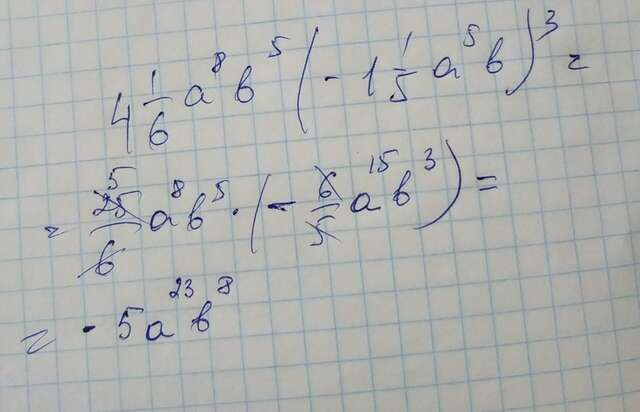 4 1/6 a⁸ b⁵ (- 1 1/5 a⁵ b)³ =
= 25/6 a⁸ b⁵ · (- 6/5 a¹⁵ b³) =
5
= - 5 a²³ b⁸